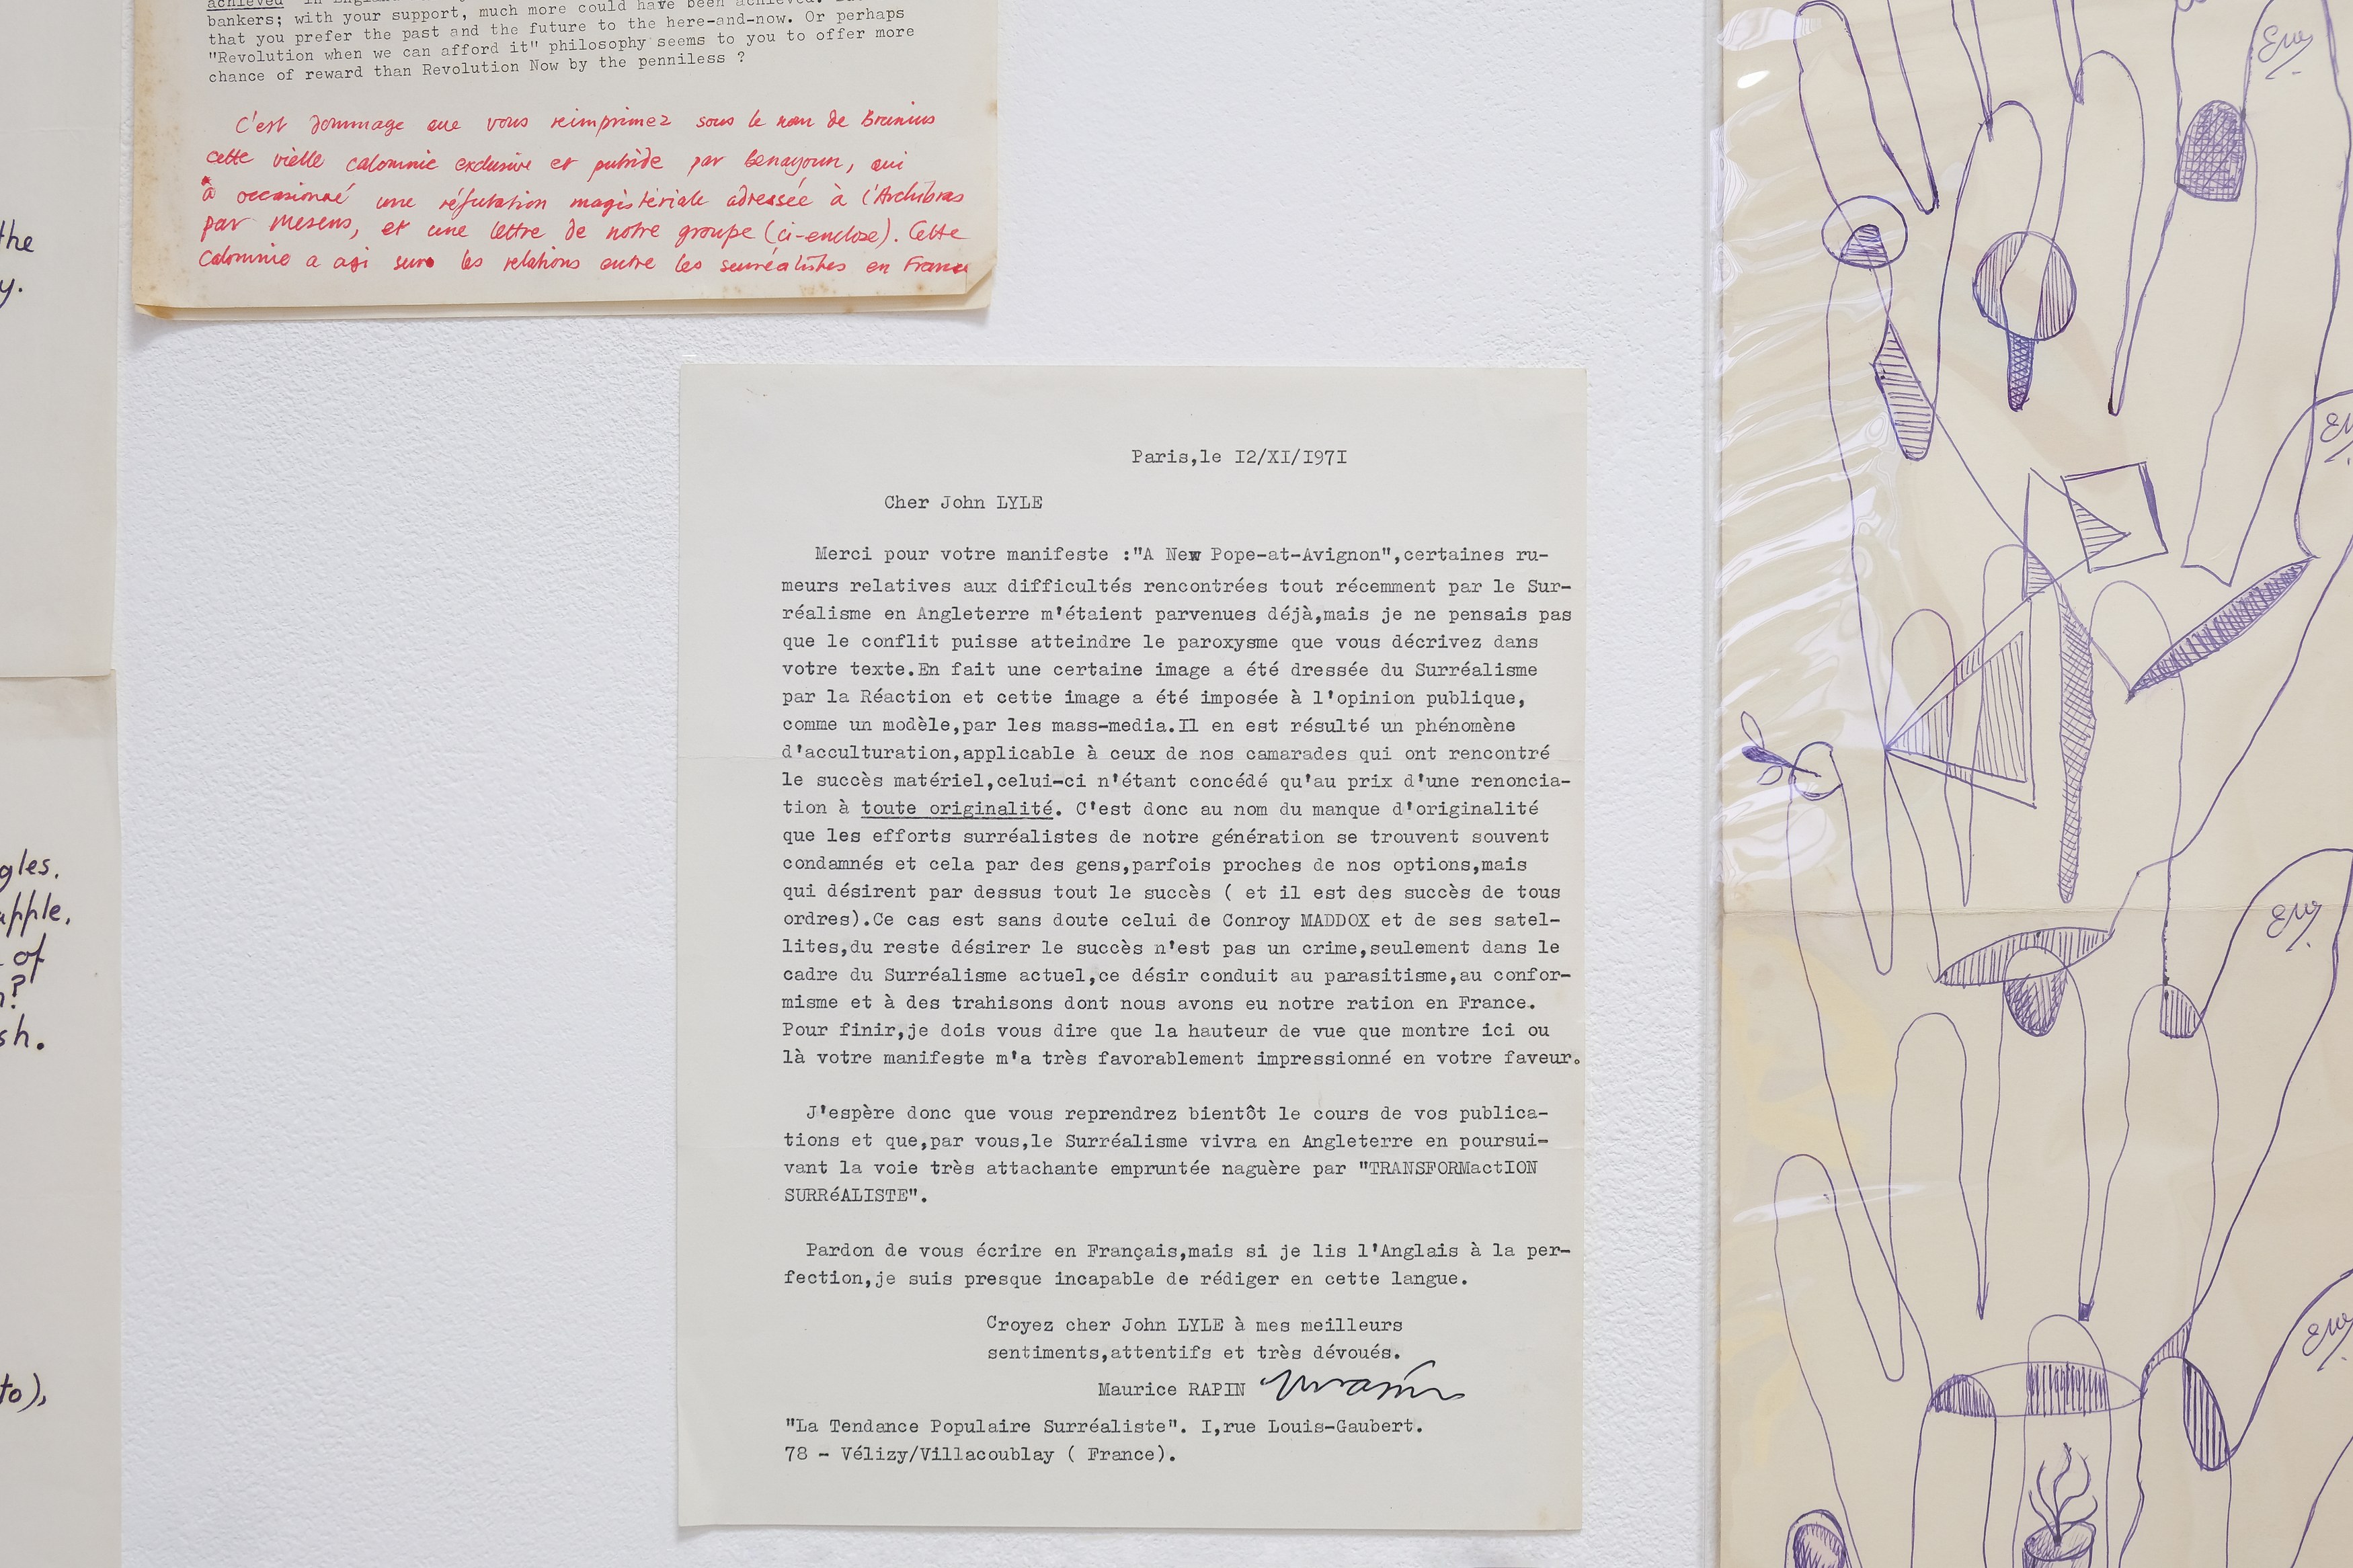 the
y.
gles.
apple.
of
n?
sh.
to),
achieved in England
bankers; with your support, much more could have been achieved.
that you prefer the past and the future to the here-and-now. Or perhaps
"Revolution when we can afford it" philosophy seems to you to offer more
chance of reward than Revolution Now by the penniless ?
C'est dommage que vous reimprimez sous le nom de Brunius
cette vielle calomnie exclusive et putride par Benayoun, qui
a occasionné une réfutation magistériale adressée à l'Archibras
par Mesens, et une lettre de notre groupe (ci-enclose). Cette
calomnie a agi sur les relations entre les surréalistes en France
Paris,le I2/XI/I97I
Cher John LYLE
Merci pour votre manifeste :"A New Pope-at-Avignon",certaines ru-
meurs relatives aux difficultés rencontrées tout récemment par le Sur-
réalisme en Angleterre m'étaient parvenues déjà,mais je ne pensais pas
que le conflit puisse atteindre le paroxysme que vous décrivez dans
votre texte.En fait une certaine image a été dressée du Surréalisme
par la Réaction et cette image a été imposée à l'opinion publique,
comme un modèle,par les mass-media.Il en est résulté un phénomène
d'acculturation,applicable à ceux de nos camarades qui ont rencontré
le succès matériel,celui-ci n'étant concédé qu'au prix d'une renoncia-
tion à toute originalité. C'est donc au nom du manque d'originalité
que les efforts surréalistes de notre génération se trouvent souvent
condamnés et cela par des gens,parfois proches de nos options,mais
qui désirent par dessus tout le succès ( et il est des succès de tous
ordres).Ce cas est sans doute celui de Conroy MADDOX et de ses satel-
lites,du reste désirer le succès n'est pas un crime,seulement dans le
cadre du Surréalisme actuel,ce désir conduit au parasitisme,au confor-
misme et à des trahisons dont nous avons eu notre ration en France.
Pour finir,je dois vous dire que la hauteur de vue que montre ici ou
là votre manifeste m'a très favorablement impressionné en votre faveur.
J'espère donc que vous reprendrez bientôt le cours de vos publica-
tions et que,par vous,le Surréalisme vivra en Angleterre en poursui-
vant la voie très attachante empruntée naguère par "TRANSFORMactION
SURRéALISTE".
Pardon de vous écrire en Français,mais si je lis l'Anglais à la per-
fection,je suis presque incapable de rédiger en cette langue.
Croyez cher John LYLE à mes meilleurs
sentiments,attentifs et très dévoués.
Maurice RAPIN
"La Tendance Populaire Surréaliste". I,rue Louis-Gaubert.
78 - Vélizy/Villacoublay ( France).